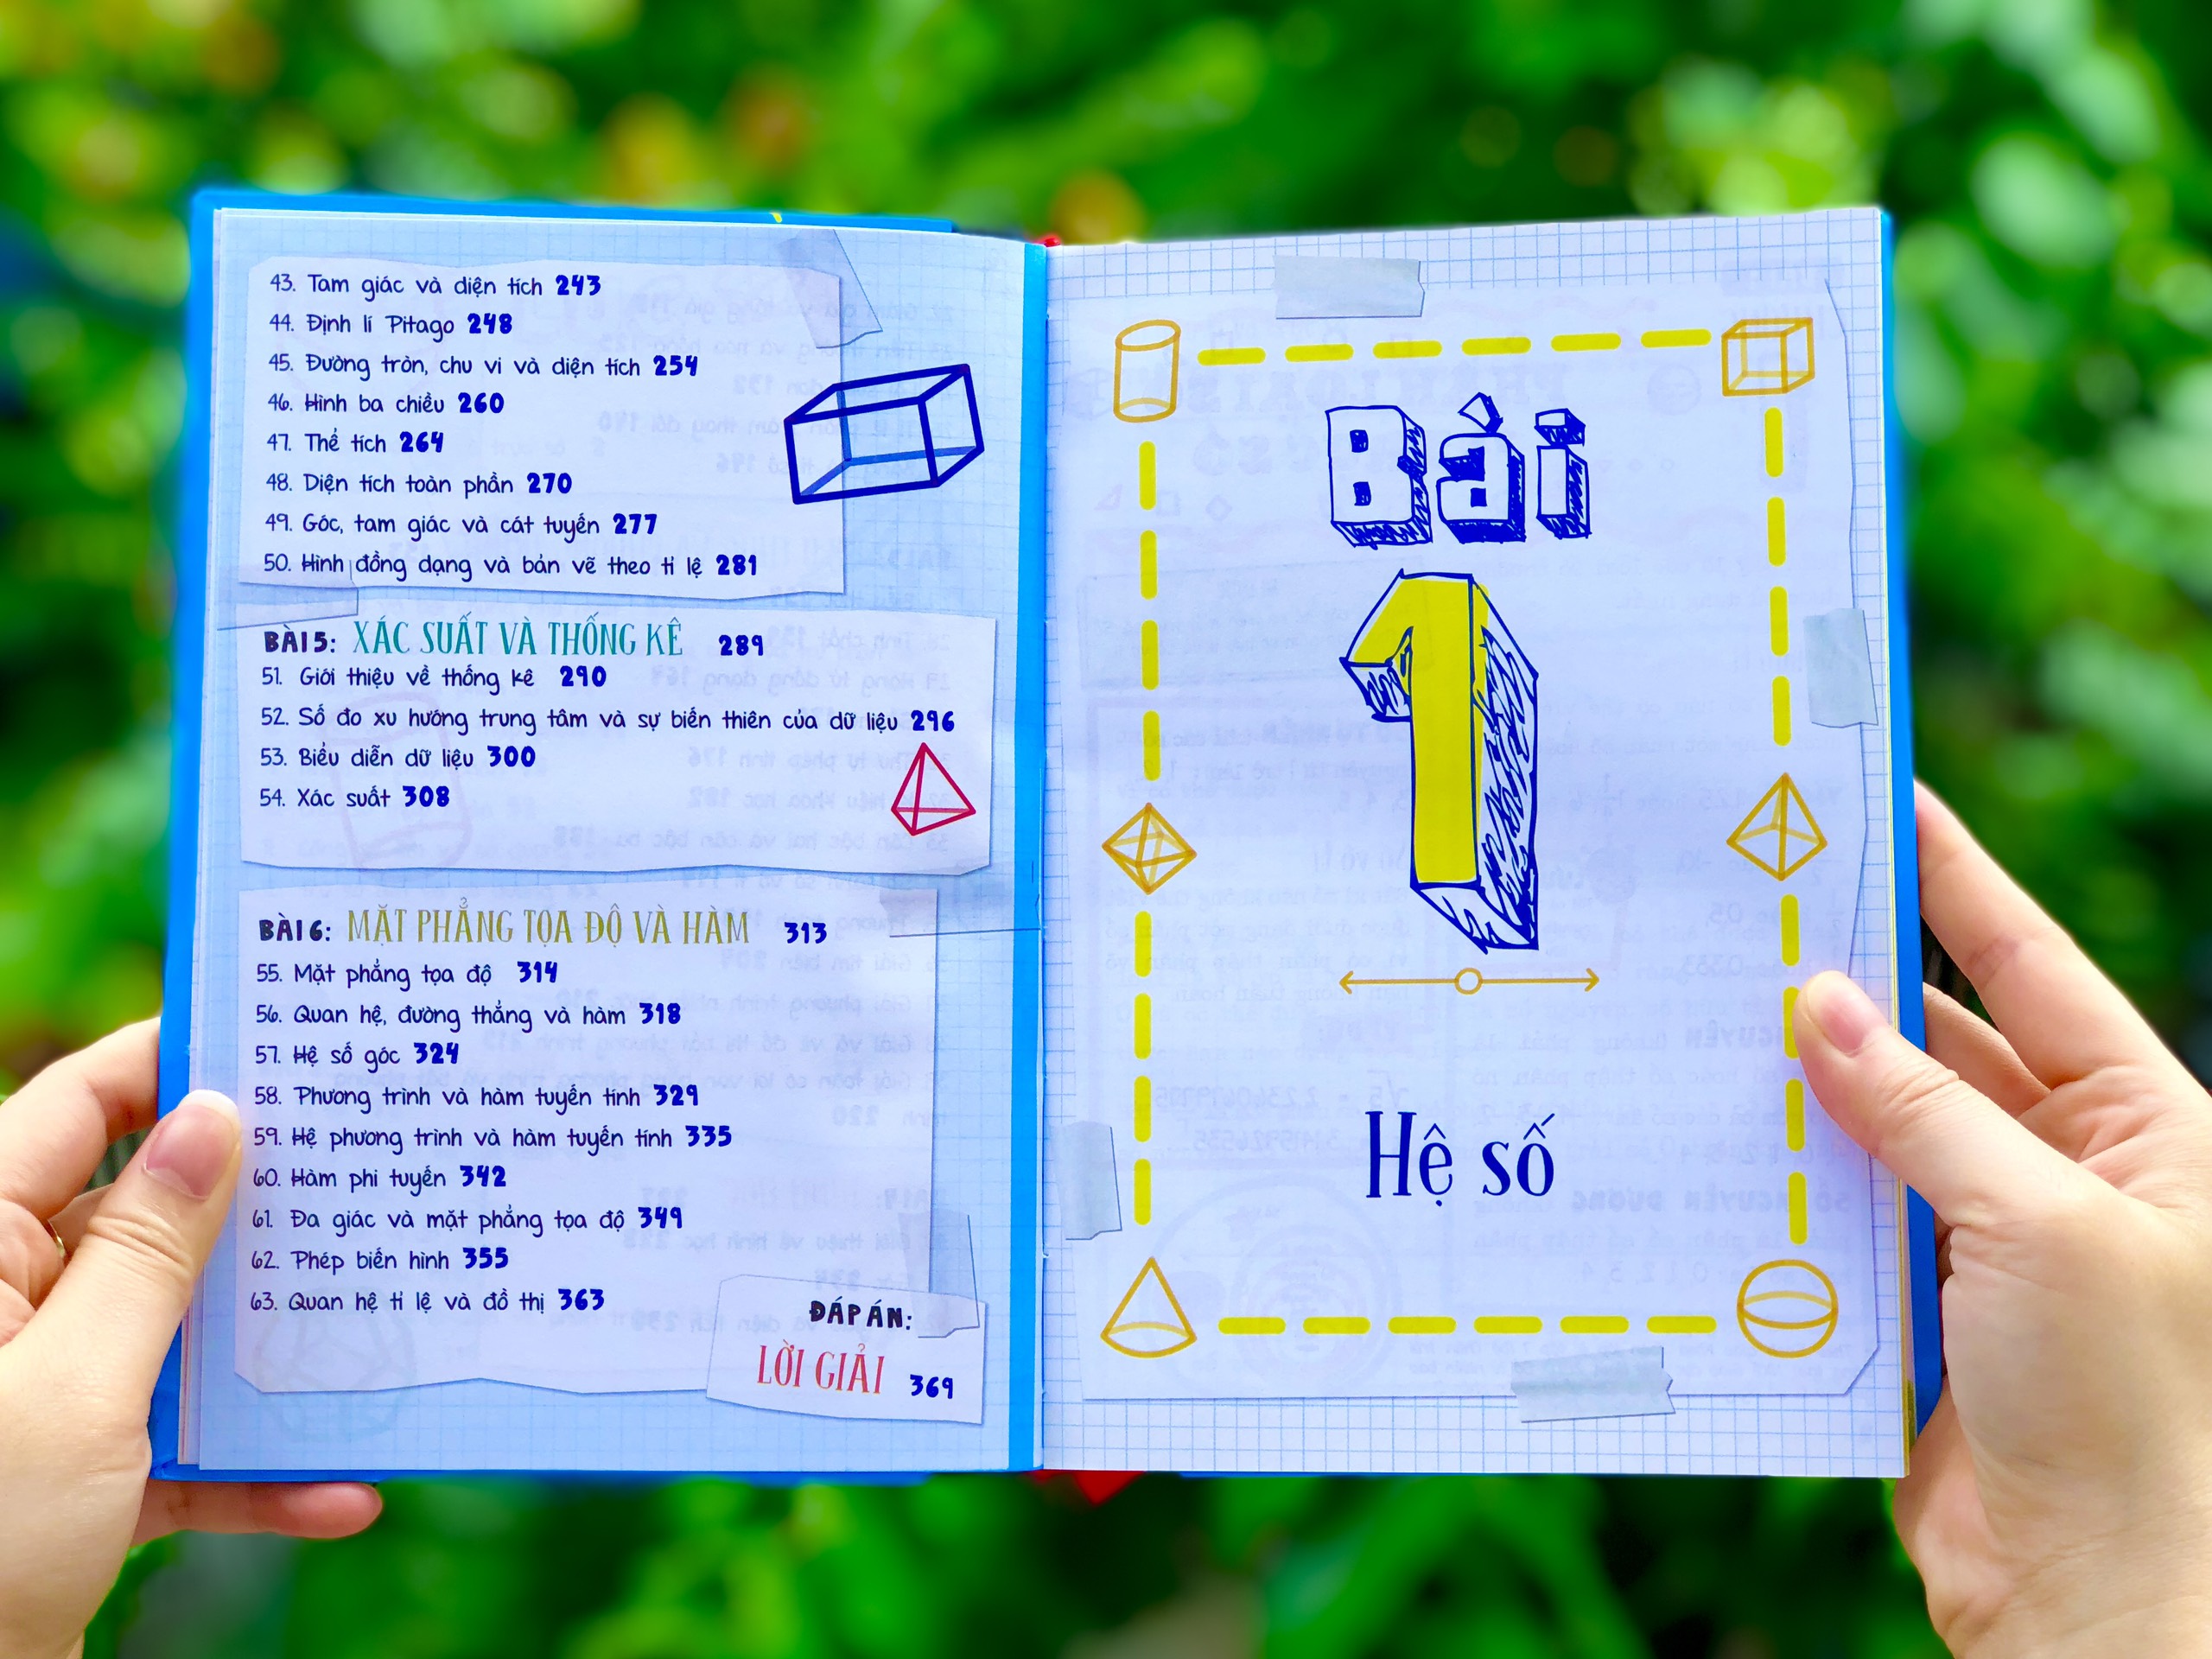 43. Tam giác và diện tích 243
44. Định lí Pitago 248
45. Đường tròn, chu vi và diện tích 254
46. Hình ba chiều 260
47. Thể tích 264
48. Diện tích toàn phần 270
49. Góc, tam giác và cát tuyến 277
50. Hình đồng dạng và bản vẽ theo tỉ lệ 281
BÀI 5: XÁC SUẤT VÀ THỐNG KÊ 289
51. Giới thiệu về thống kê 290
52. Số đo xu hướng trung tâm và sự biến thiên của dữ liệu 296
53. Biểu diễn dữ liệu 300
54. Xác suất 308
BÀI 6: MẶT PHẲNG TỌA ĐỘ VÀ HÀM 313
55. Mặt phẳng tọa độ 314
56. Quan hệ, đường thẳng và hàm 318
57. Hệ số góc 324
58. Phương trình và hàm tuyến tính 329
59. Hệ phương trình và hàm tuyến tính 335
60. Hàm phi tuyến 342
61. Đa giác và mặt phẳng tọa độ 349
62. Phép biến hình 355
63. Quan hệ tỉ lệ và đồ thị 363
ĐÁP ÁN:
LỜI GIẢI 369
Bài
1
Hệ số